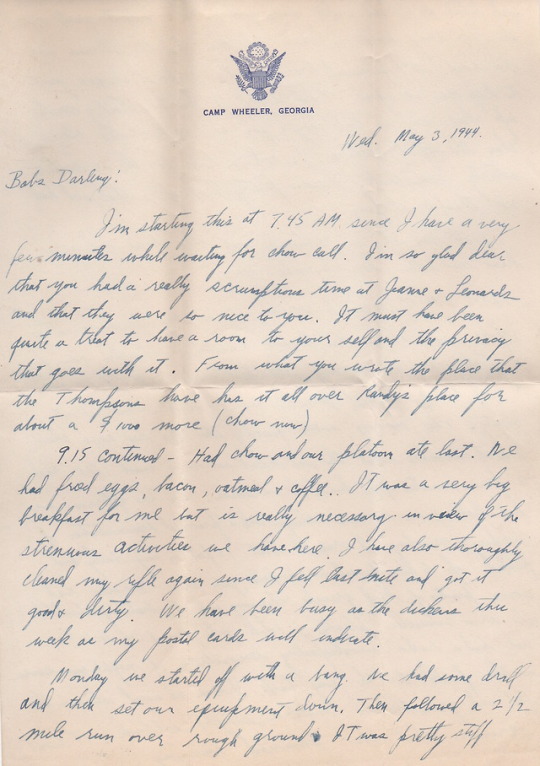 CAMP WHEELER, GEORGIA
Wed. May 3, 1944.
Babs Darling!
I'm starting this at 7.45 A.M. since I have a very
few minutes while waiting for chow call. I'm so glad dear
that you had a really scrumptious time at Jeanne & Leonards
and that they were so nice to you. It must have been
quite a treat to have a room to your self and the privacy
that goes with it. From what you wrote the place that
the Thompsons have has it all over Randy's place for
about a $1000 more (chow now)
9.15 continued - Had chow and our platoon ate last. We
had fried eggs, bacon, oatmeal & coffee.. It was a very big
breakfast for me but is really necessary in view of the
strenuous activities we have here. I have also thoroughly
cleaned my rifle again since I fell last nite and got it
good & dirty. We have been busy as the dickens this
week as my postal cards will indicate.
Monday we started off with a bang. We had some drill
and then set our equipment down. Then followed a 2 1/2
mile run over rough ground. It was pretty stiff